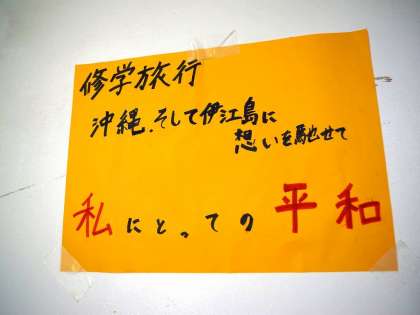 修学旅行
沖縄、そして伊江島に
想いを馳せて
私にとっての平和